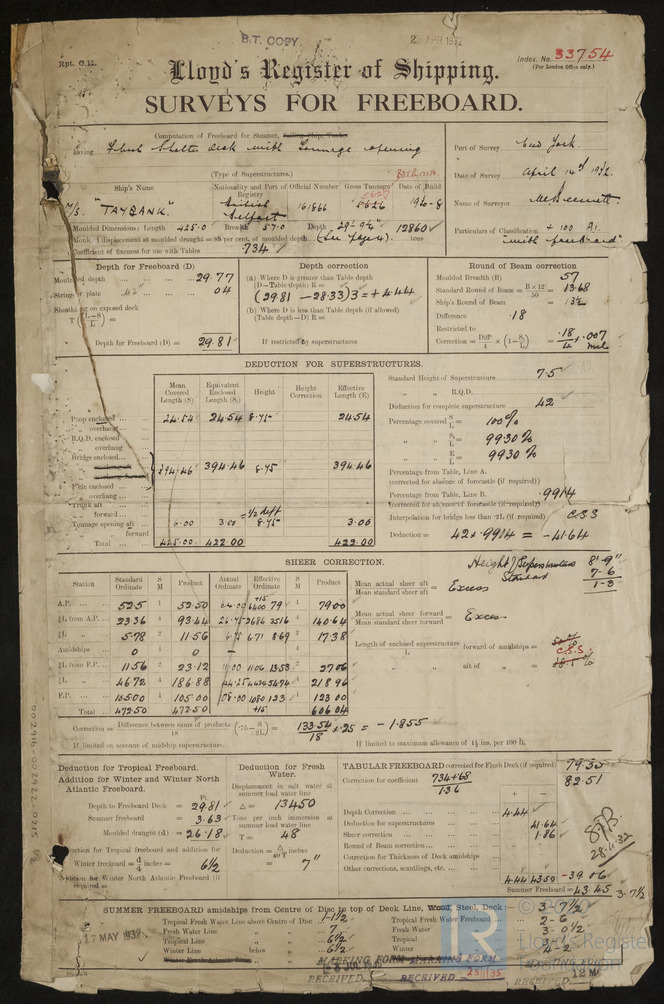 B.T. COPY.
25 APR 1932
Rpt. C.11.
Index. No. 33754
(For London Office only.)
Lloyd's Register of Shipping.
SURVEYS FOR FREEBOARD.
Computation of Freeboard for Summer, Sailing Ship, Tanker
having Shelter deck with Tonnage opening
(Type of Superstructures.)
Port of Survey New York.
Date of Survey April 14th 1932.
Name of Surveyor
Particulars of Classification + 100 A1.
"with freeboard"
Ship's Name Nationality and Port of Registry Official Number Gross Tonnage Date of Build
M/S. "TAYBANK" British Belfast 161866 5627 1930-8
Moulded Dimensions: Length 425.0 Breadth 57.0 Depth 29'-9¼"
Moulded displacement at moulded draught = 85 per cent. of moulded depth (See page 4). 12860 tons
Coefficient of fineness for use with Tables .734
Depth for Freeboard (D)
Moulded depth ... 29.77
Stringer plate ... .04
Sheathing on exposed deck
T (L-S / L) =
Depth for Freeboard (D) = 29.81
Depth correction
(a) Where D is greater than Table depth
(D—Table depth) R =
(29.81 - 28.33) 3 = + 4.44
(b) Where D is less than Table depth (if allowed)
(Table depth—D) R =
If restricted by superstructures
Round of Beam correction
Moulded Breadth (B) 57
Standard Round of Beam = B × 12 / 50 = 13.68
Ship's Round of Beam = 13½
Difference .18
Restricted to
Correction = Diff / 4 × (1 - S₁/L) = .18/4 × .007
nil
DEDUCTION FOR SUPERSTRUCTURES.
Mean Covered Length (S) Equivalent Enclosed Length (S₁) Height Height Correction Effective Length (E)
Poop enclosed ... 24.54 24.54 8.75 24.54
" overhang
R.Q.D. enclosed
" overhang
Bridge enclosed ... 394.46 394.46 8.75 394.46
F'cle enclosed ...
" overhang ...
Trunk aft ...
" forward ... = ½ diff
Tonnage opening aft ... 6.00 3.00 8.75 3.00
" " forward
Total ... 425.00 422.00 422.00
Standard Height of Superstructure 7.5
" " R.Q.D.
Deduction for complete superstructure 42
Percentage covered S/L = 100%
" " S₁/L = 99.30%
" " E/L = 99.30%
Percentage from Table, Line A.
(corrected for absence of forecastle (if required))
Percentage from Table, Line B. .9914
(corrected for absence of forecastle (if required))
Interpolation for bridge less than .2L (if required) C.S.S
Deduction = 42 × .9914 = -41.64
SHEER CORRECTION.
Height of Superstructure 8'-9"
Standard 7-6
1-3
Station Standard Ordinate S M Product Actual Ordinate Effective Ordinate S M Product
A.P. ... 52.5 1 52.50 64.00 +15 6400 79 1 79.00
¼L from A.P. ... 23.36 4 93.44 26.75 2686 2516 4 140.64
½L " 5.78 2 11.56 6.75 6.71 8.69 2 17.38
Amidships 0 4 0 — 4
½L from F.P. ... 11.56 2 23.12 11.00 11.06 13.53 2 27.06
¼L " 46.72 4 186.88 44.25 4474 54.74 4 218.96
F.P. ... 105.00 1 105.00 108.00 1080 123 1 123.00
Total ... 472.50 472.50 +15 606.04
Mean actual sheer aft / Mean standard sheer aft = Excess
Mean actual sheer forward / Mean standard sheer forward = Excess
Length of enclosed superstructure / L forward of amidships =
C.S.S.
" " aft of " =
Correction = Difference between sums of products / 18 (.75 - S/2L) = 133.54 / 18 × .25 = - 1.855
If limited on account of midship superstructure.
If limited to maximum allowance of 1½ ins. per 100 ft.
Deduction for Tropical Freeboard.
Addition for Winter and Winter North Atlantic Freeboard.
Ft.
Depth to Freeboard Deck = 29.81
Summer freeboard = 3.63
Moulded draught (d) = 26.18
Deduction for Tropical freeboard and addition for
Winter freeboard = d/4 inches = 6½
Addition for Winter North Atlantic Freeboard (if required) =
Deduction for Fresh Water.
Displacement in salt water at summer load water line
Δ = 13450
Tons per inch immersion at summer load water line
T = 48
Deduction = Δ / 40 T inches
= 7"
TABULAR FREEBOARD corrected for Flush Deck (if required) 79.30
Correction for coefficient .734 + .68 / 1.36 82.51
+ -
Depth Correction 4.44
Deduction for superstructures 41.64
Sheer correction 1.86
Round of Beam correction
Correction for Thickness of Deck amidships
Other corrections, scantlings, etc.
4.44 43.50 -39.06
Summer Freeboard = 43.45
3-7½
28.4.32
SUMMER FREEBOARD amidships from Centre of Disc to top of Deck Line, Wood, Steel, Deck: 3-7½
Tropical Fresh Water Line above Centre of Disc 1-1½
Fresh Water Line " " 7
Tropical Line " " 6½
Winter Line below " 6½
Winter North Atlantic Line " "
Tropical Fresh Water Freeboard 2-6
Fresh Water " 3-0½
Tropical "
Winter " 4-2
17 MAY 1932
MARKING FORM
RECEIVED
RECEIVED 25/1/35
MARKING FORM
RECEIVED
© 2020
LR
Lloyd's Register
002916-002922-0215 ½